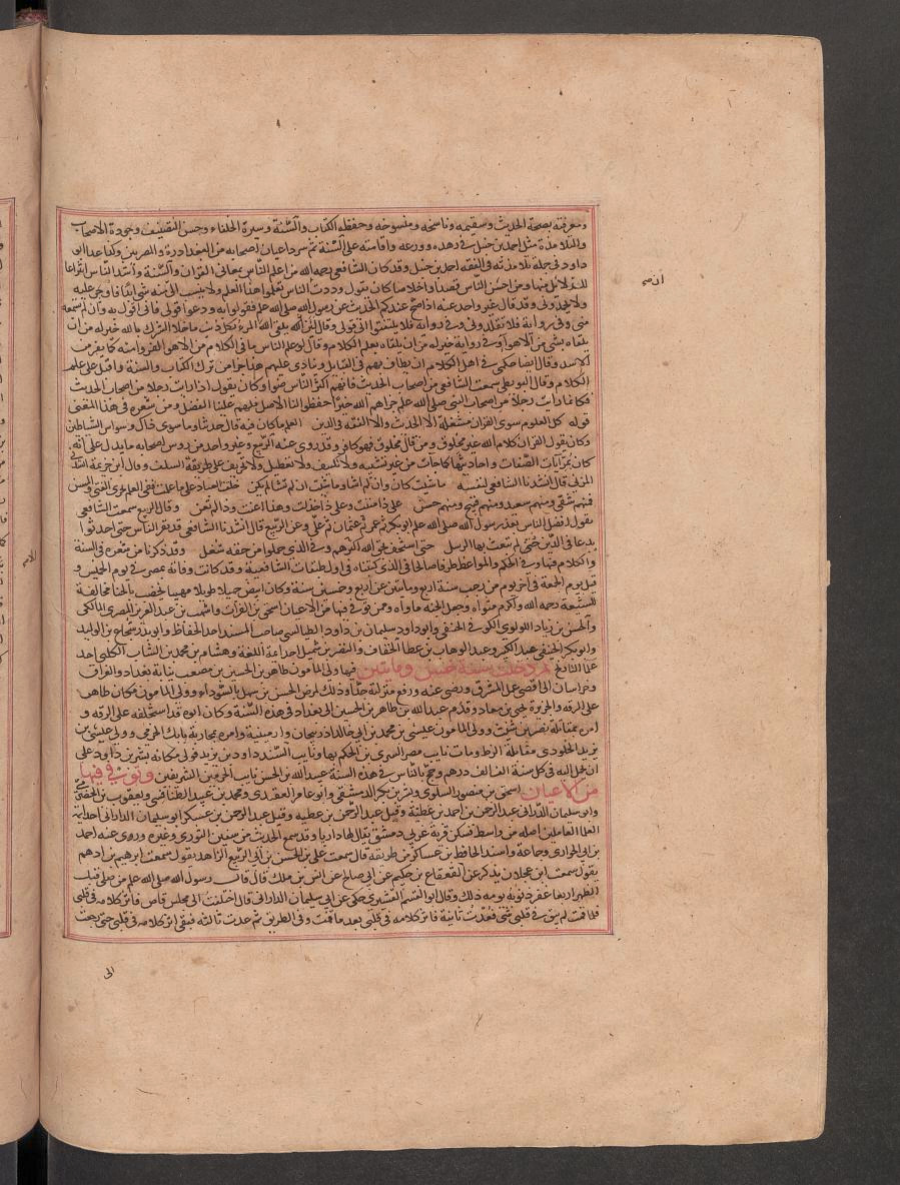 ومعرفته بصحة الحديث وسقيمه وناسخه ومنسوخه وحفظه الكتاب والسنة وسيرة الخلفاء وحسن التصنيف وجودة الاصحاب
والتلامذة مثل احمد بن حنبل في زهده وورعه واقامته على السنة ثم سرد اعيان اصحابه من البغداددة والمصريين وكذا عد ابو
داود في جملة تلامذته في الفقه احمد بن حنبل وقد كان الشافعي رحمه الله من اعلم الناس بمعاني القران والسنة واشد الناس انتزاعا
للدلائل منهما ومن احسن الناس قصدا واخلاصا كان يقول وددت الناس تعلموا هذا العلم ولا ينسب الى منه شي ابدا فاوجر عليه
ولا يحمدوني وقد قال غير واحد عنه اذا صح عندكم الحديث عن رسول الله صلى الله علم فقولوا به ودعوا قولي فاني اقول به وان لم تسمعوه
مني وفي رواية فلا تقلدوني وفي رواية فلا تلتفتوا الى قولي وقال لان يلقى الله المرء بكل ذنب ما خلا الشرك بالله خير له من ان
يلقاه بشي من الاهوا وفي رواية خير له من ان يلقاه بعلم الكلام وقال لو علم الناس ما في الكلام من الاهوا لفروا منه كما يفر من
الاسد وقال ايضا حكمي في اهل الكلام ان يطاف بهم في القبايل وينادى عليهم هذا جزا من ترك الكتاب والسنة واقبل على علم
الكلام وقال البويطي سمعت الشافعي من اصحاب الحديث فانهم اكثر الناس صوابا وكان يقول اذا رايت رجلا من اصحاب الحديث
فكانما رايت رجلا من اصحاب النبي صلى الله علم جزاهم الله خيرا حفظوا لنا الاصل فلهم علينا الفضل ومن شعره في هذا المعنى
قوله كل العلوم سوى القران مشغلة الا الحديث والا الفقه في الدين العلم ما كان فيه قال حدثنا وما سوى ذاك وسواس الشياطين
وكان يقول القران كلام الله غير مخلوق ومن قال مخلوق فهو كافر وقد روى عنه الربيع وغير واحد من روس اصحابه ما يدل على انه
كان يمر ايات الصفات واحاديثها كما جات من غير تشبيه ولا تكييف ولا تعطيل ولا تحريف على طريقة السلف وقال ابن خزيمة انشدني
المزني قال انشدنا الشافعي لنفسه ما شئت كان وان لم اشا وما شئت ان لم تشا لم يكن خلقت العباد على ما علمت ففي العلم يجري الفتى والمسن
فمنهم شقي ومنهم سعيد ومنهم قبيح ومنهم حسن على ذا مننت وعلى ذا خذلت وهذا اعنت وذا لم تعن وقال الربيع سمعت الشافعي
يقول افضل الناس بعد رسول الله صلى الله علم ابو بكر ثم عمر ثم عثمان ثم علي وعن الربيع قال انشدنا الشافعي قد نقر الناس حتى احدثوا
بدعا في الدين حتى لم تبعث بها الرسل حتى استخف بحق الله اكثرهم وفي الذي حملوا من حقه شغل وقد ذكرنا من شعره في السنة
والكلام فيها وفي الحكم والمواعظ طرفا صالحا في الذي كتبناه في اول طبقات الشافعية وقد كانت وفاته بمصر في يوم الخميس و
قيل يوم الجمعة في اخر يوم من رجب سنة اربع وماتين عن اربع وخمسين سنة وكان ابيض جميلا طويلا مهيبا يخضب بالحنا مخالفة
للشيعة رحمه الله واكرم مثواه وجعل الجنة ماواه وممن توفي فيها من الاعيان اسحق بن الفرات واشهب بن عبد العزيز المصري المالكي
والحسن بن زياد اللولوي الكوفي الحنفي وابو داود سليمان بن داود الطيالسي صاحب المسند احد الحفاظ وابو بدر شجاع بن الوليد
وابو بكر الحنفي عبد الكبير وعبد الوهاب بن عطا الخفاف والنضر بن شميل احد ائمة اللغة وهشام بن محمد بن السائب الكلبي احد
علما التاريخ ثم دخلت سنة خمس وماتين فيها ولى المامون طاهر بن الحسين بن مصعب نيابة بغداد والعراق
وخراسان الى اقصى عمل المشرق ورضي عنه ورفع منزلته جدا وذلك لمرض الحسن بن سهل بالسوداء وولى المامون مكان طاهر
على الرقه والجزيرة يحيى بن معاذ وقدم عبد الله بن طاهر بن الحسين الى بغداد في هذه السنة وكان ابوه قد استخلفه على الرقه و
امره بمقاتلة نصر بن شبث وولى المامون عيسى بن محمد بن ابي خالد اذربيجان وارمينية وامره بمحاربة بابك الخرمي وولى عيسى بن
يزيد الجلودي مقاتلة الزط ومات نايب مصر السري بن الحكم بها ونايب السند داود بن يزيد فولى مكانه بشر بن داود على
ان يحمل اليه في كل سنة الف الف درهم وحج بالناس في هذه السنة عبيد الله بن الحسن نايب الحرمين الشريفين وتوفي فيها
من الاعيان اسحق بن منصور السلولي وبشر بن بكر الدمشقي وابو عامر العقدي ومحمد بن عبيد الطنافسي ويعقوب بن الحضرمي
وابو سليمان الداراني عبد الرحمن بن احمد بن عطية وقيل عبد الرحمن بن عطيه وقيل عبد الرحمن بن عسكر ابو سليمان الداراني احد ايمة
العلما العاملين اصله من واسط فسكن قرية غربي دمشق يقال لها داريا وقد سمع الحديث من سفين الثوري وغيره وروى عنه احمد
بن ابي الحواري وجماعة واسند الحافظ بن عساكر من طريقه قال سمعت علي بن الحسن بن ابي الربيع الزاهد يقول سمعت ابرهيم بن ادهم
يقول سمعت ابن عجلان يذكر عن القعقاع بن حكيم عن ابي صالح عن انس بن ملك قال قال رسول الله صلى الله علم من صلى قبل
الظهر اربعا غفر ذنوبه يومه ذلك وقال ابو القسم القشيري حكي عن ابي سليمان الداراني قال اختلفت الى مجلس قاص فاثر كلامه في قلبي
فلما قمت لم يبق في قلبي شي فعدت ثانية فاثر كلامه في قلبي بعد ما قمت وفي الطريق ثم عدت ثالثه فبقي اثر كلامه في قلبي حتى رجعت
الى